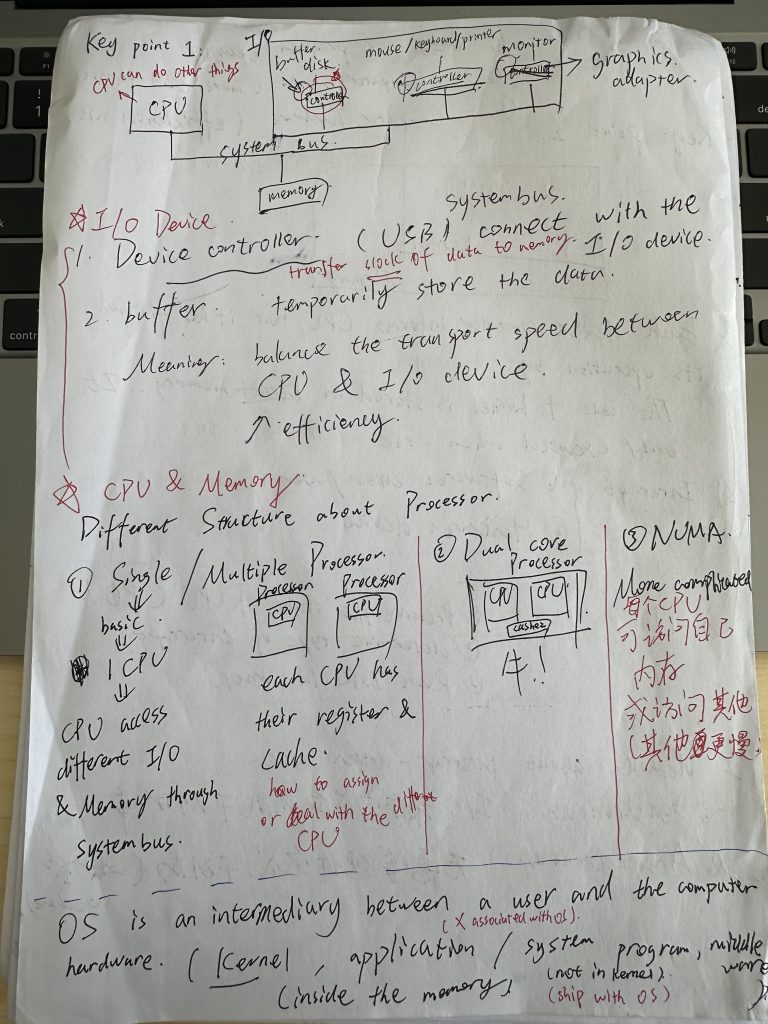 Key point 1:
I/O
buffer
disk
mouse/keyboard/printer
monitor
CPU can do other things
controller
controller
controller
graphics
adapter.
CPU
system bus.
memory
I/O Device.
system bus.
1. Device controller. (USB) connect with the
I/O device.
transfer clock of data to memory.
2. buffer. temporarily store the data.
Meaning: balance the transport speed between
CPU & I/O device.
↗ efficiency.
CPU & Memory.
Different Structure about Processor.
① Single / Multiple Processor.
basic.
1 CPU
CPU access
different I/O
& Memory through
system bus.
Processor Processor
CPU CPU
each CPU has
their register &
cache.
how to assign
or deal with the different
CPU
② Dual core
Processor
CPU CPU
牛!
③ NUMA.
More complicated
每个CPU
可访问自己
内存
或访问其他
(其他更慢)
OS is an intermediary between a user and the computer
(X associated with OS).
hardware. (Kernel, application / system program, middle
ware)
(inside the memory)
(not in kernel).
(ship with OS)
! 1
contr